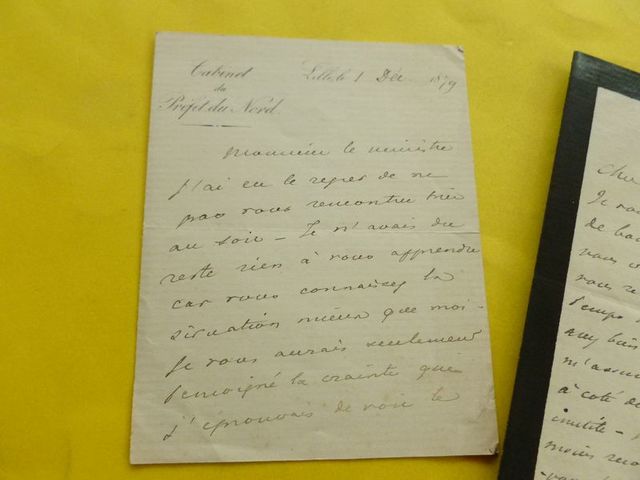 Cabinet
du
Préfet du Nord
Lille, le 1 Déc 1879
Monsieur le ministre
J'ai eu le regret de ne
pas vous rencontrer hier
au soir - Je n'avais du
reste rien à vous apprendre
car vous connaissez la
situation mieux que moi -
Je vous aurais seulement
témoigné la crainte que
j'éprouvais de voir le
cher
Je
de
vous
vous
temps
bien
à coté de
inutile -
moins